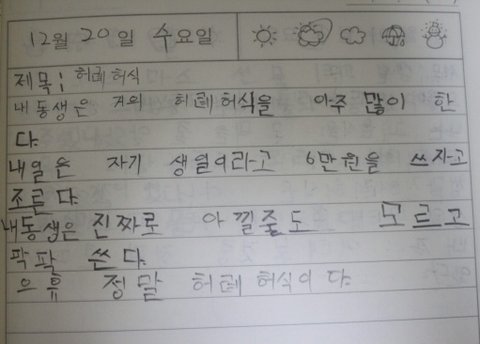 12월 20일 수요일
제목: 허레허식
내 동생은 거의 허레허식을 아주 많이 한
다.
내일은 자기 생일이라고 6만원을 쓰자고
조른다.
내동생은 진짜로 아낄줄도 모르고
팍팍 쓴다.
으휴 정말 허레 허식이다.